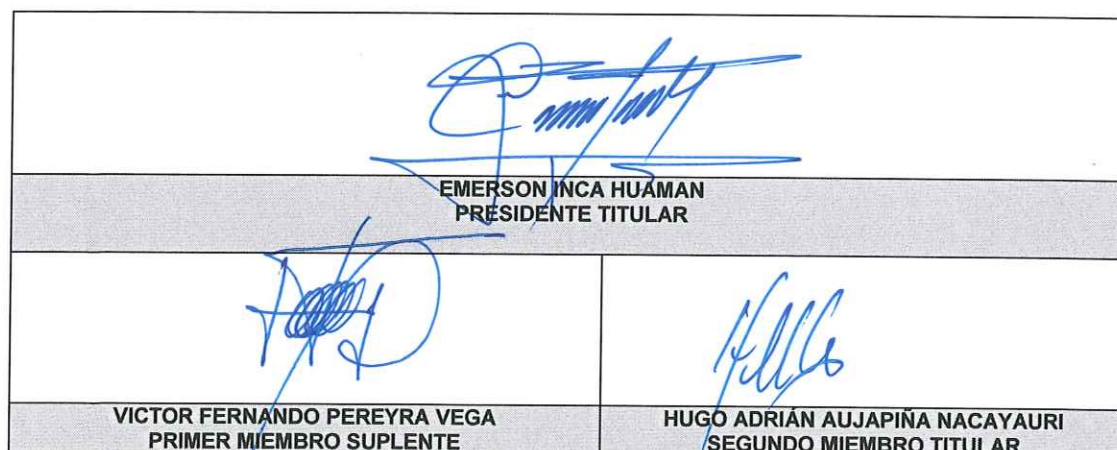 EMERSON INCA HUAMAN
PRESIDENTE TITULAR
VICTOR FERNANDO PEREYRA VEGA
PRIMER MIEMBRO SUPLENTE
HUGO ADRIÁN AUJAPIÑA NACAYAURI
SEGUNDO MIEMBRO TITULAR